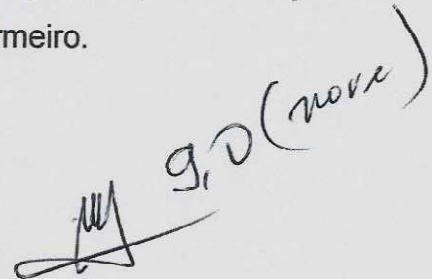 rmeiro.
9,0 (nove)